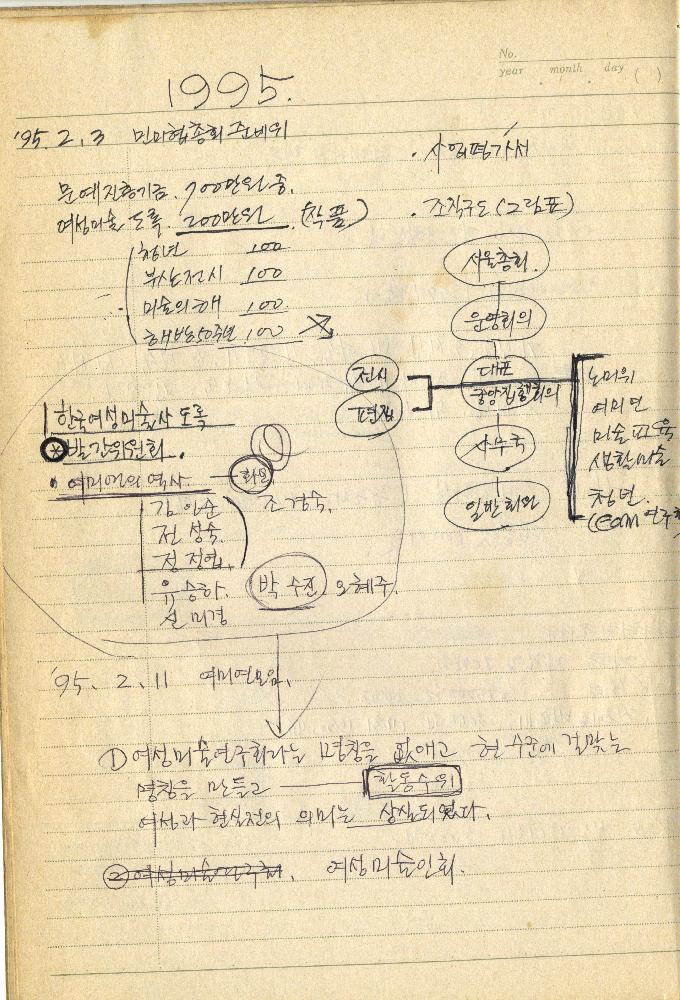 No.
year month day ( )
1995.
'95. 2. 3 민미협총회 준비위
· 사업평가서
문예진흥기금. 700만원 중.
여성미술 도록. 200만원. (작품)
· 조직구도 (그림표)
청년 100
부산전시 100
미술의해 100
해방50주년 100
서울총회.
운영회의
대표
중앙집행회의
사무국
일반회원
전시
편집
노미위
여미연
미술교육
생활미술
청년.
(COM 연구회
한국여성미술사 도록
발간위원회.
· 여미연의 역사. 화요
김인순 조경숙.
전성숙.
정정엽.
유승하. 박수진 오혜주.
신미경
'95. 2. 11 여미연모임.
① 여성미술연구회라는 명칭을 없애고 현 수준에 걸맞는
명칭을 만들고 활동수위
여성과 현실전의 의미는 상실되었다.
② 여성미술연구회. 여성미술인회.